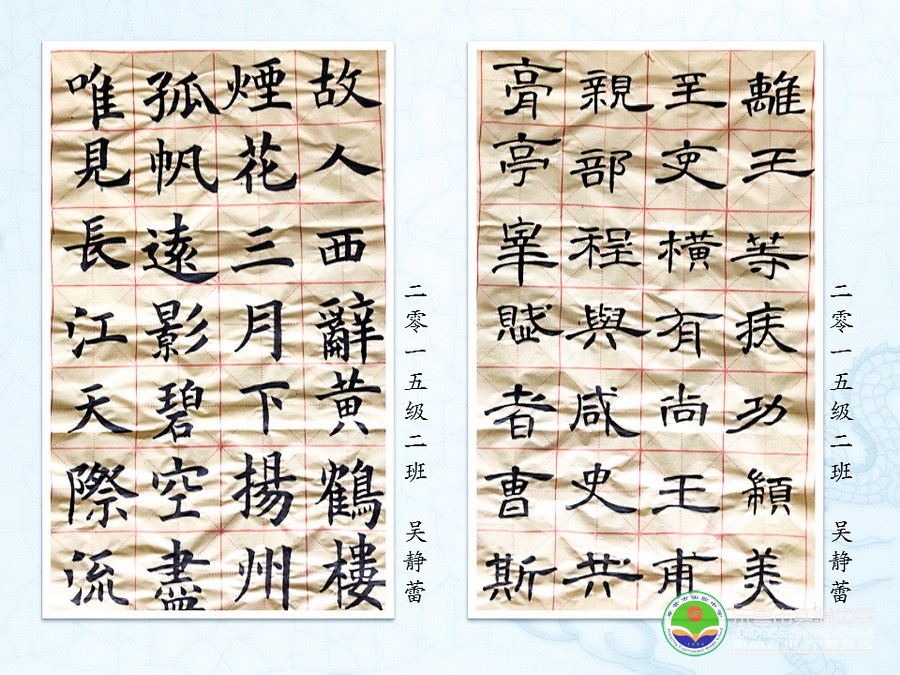 故人西辭黄鶴樓
煙花三月下揚州
孤帆遠影碧空盡
唯見長江天際流
二零一五级二班 吴静蕾
離王等疾功美
至橫有尚王甫
親部程與咸史共
膏亭賦者曹斯
二零一五级二班 吴静蕾
东营市实验中学
DONGYINGSHISHIYANZHONGXUE